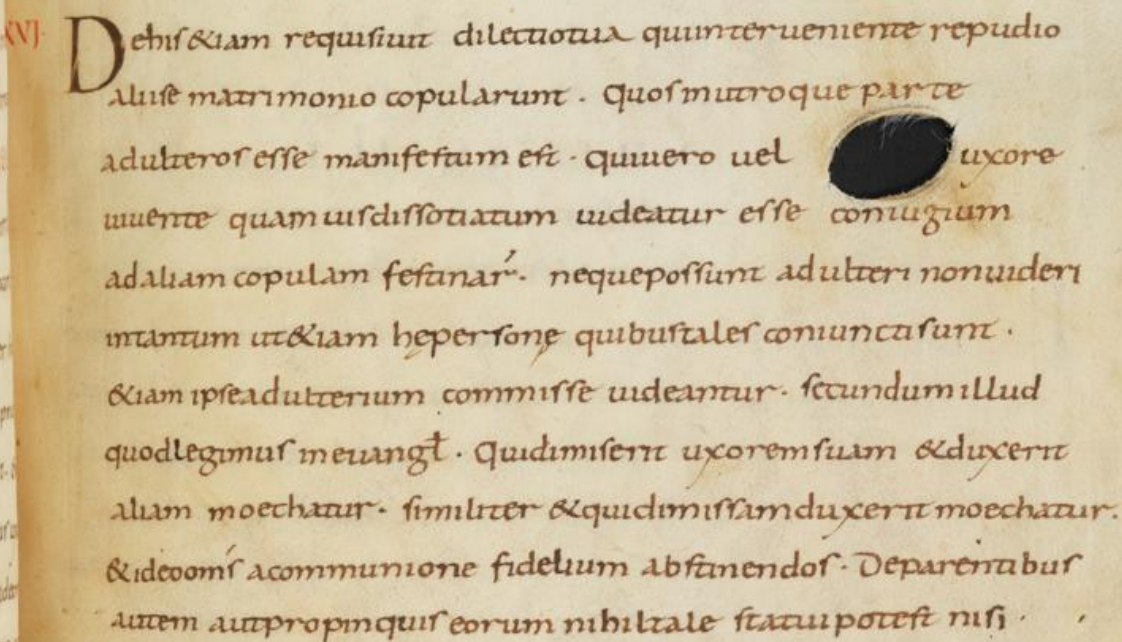 XVI·
De his &iam requisiuit dilectio tua qui interueniente repudio
alii se matrimonio copularunt · Quos in utroque parte
adulteros esse manifestum est · qui uero uel uxore
uiuente quam uis dissotiatum uideatur esse coniugium
ad aliam copulam festinar̄· neque possunt adulteri non uideri
in tantum ut &iam hę personę quibus tales coniuncti sunt ·
&iam ipse adulterium commisse uideantur · secundum illud
quod legimus in euangł · Qui dimiserit uxorem suam & duxerit
aliam moechatur · similiter & qui dimissam duxerit moechatur.
& ideo om̄s a communione fidelium abstinendos · De parentibus
autem aut propinquis eorum nihil tale statui potest nisi ·